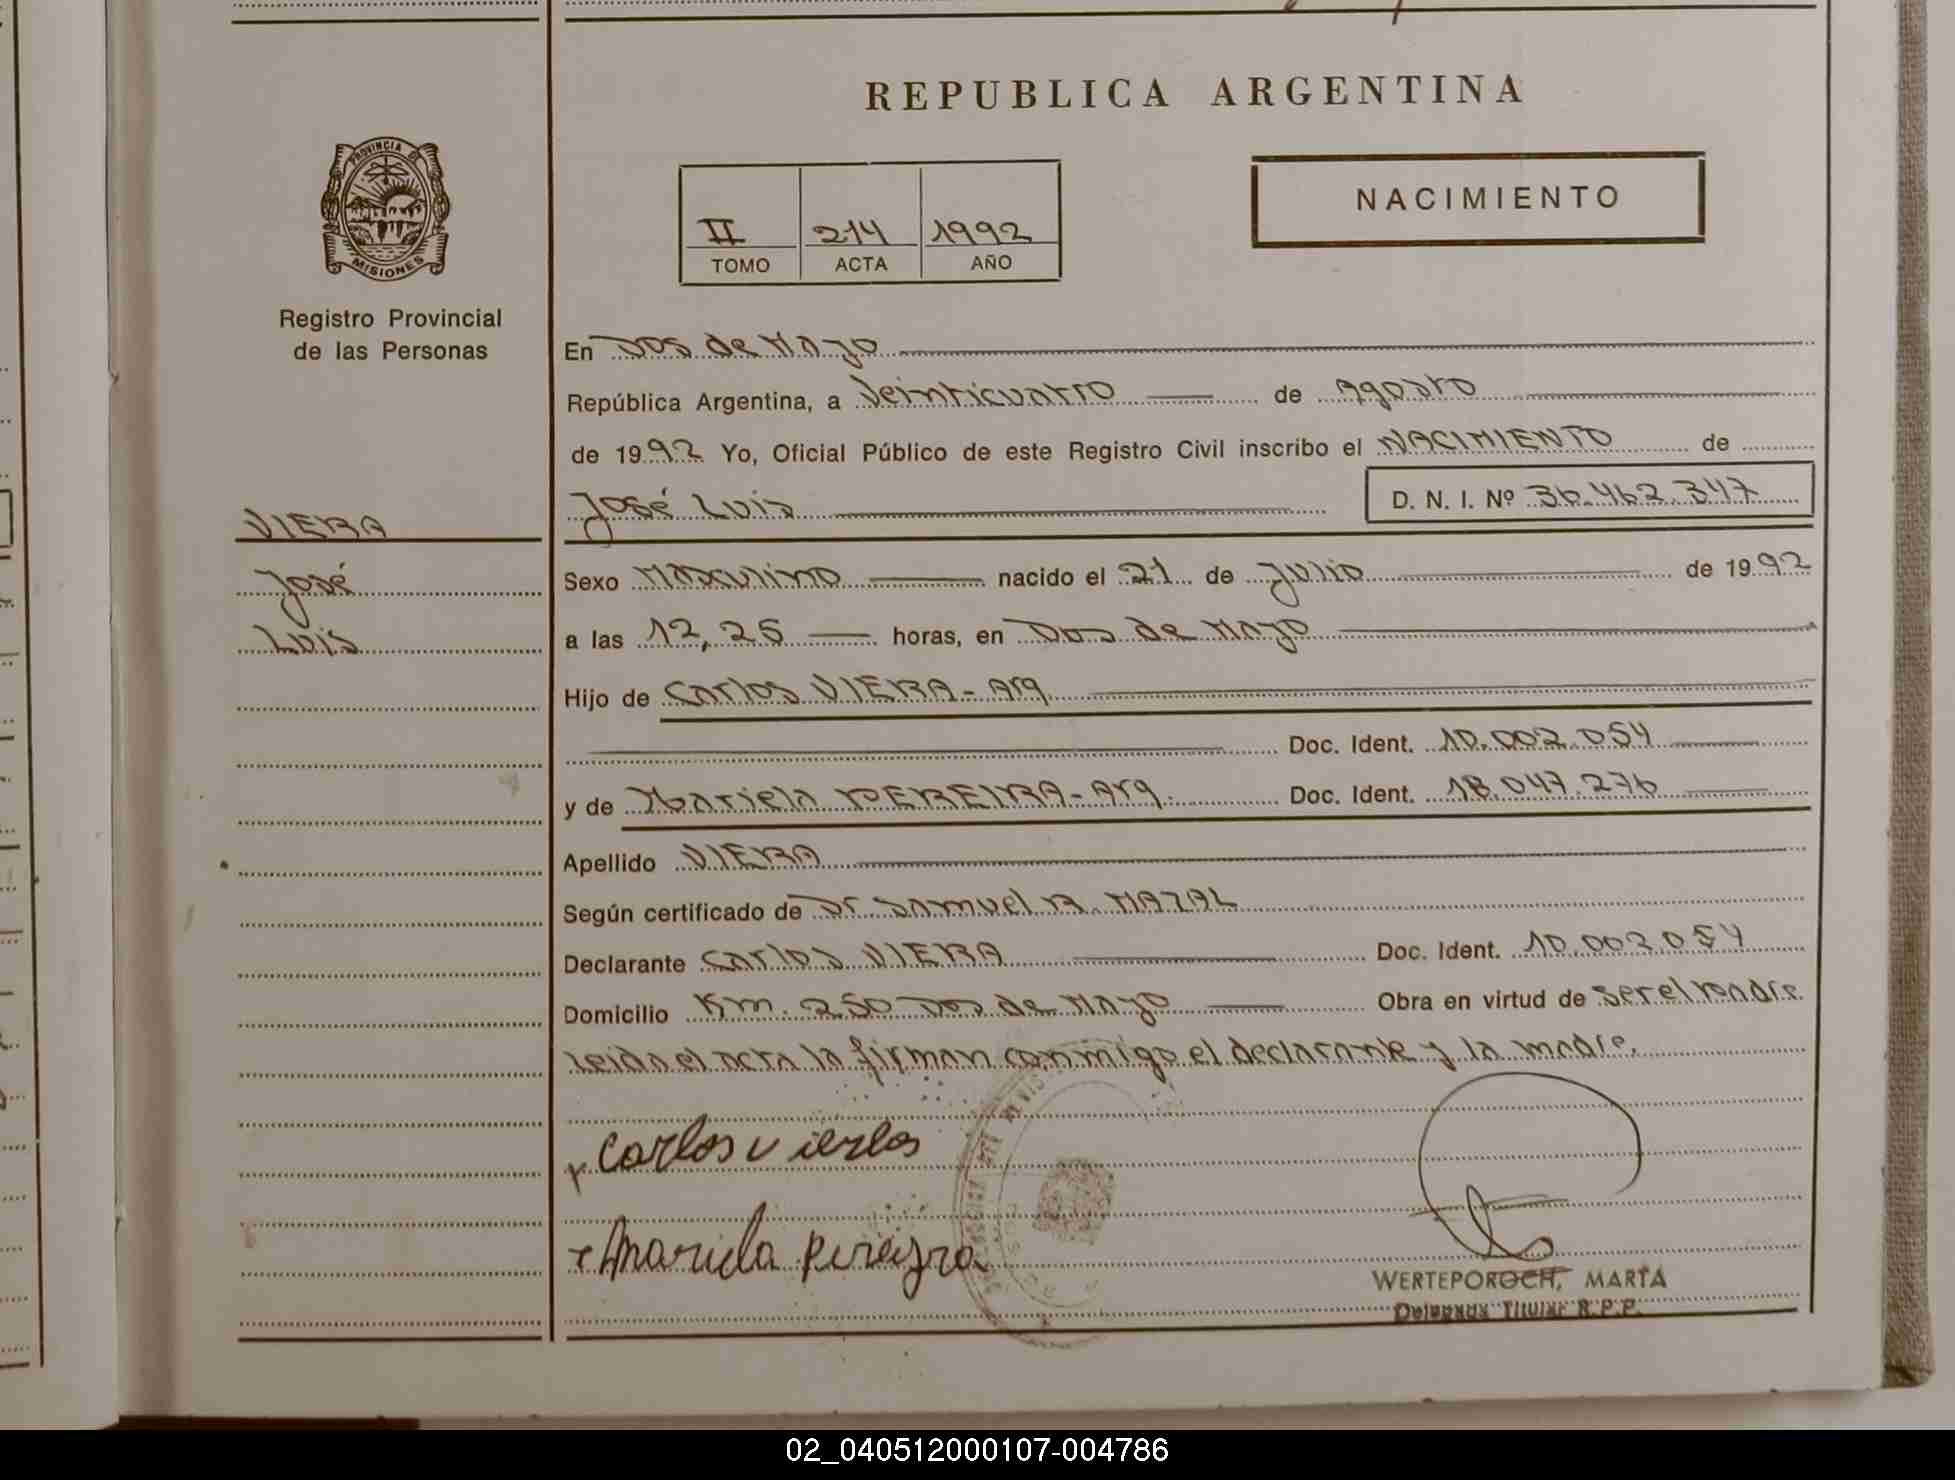 REPUBLICA ARGENTINA
PROVINCIA DE
MISIONES
Registro Provincial
de las Personas
II 214 1992
TOMO ACTA AÑO
NACIMIENTO
En Dos de Mayo
República Argentina, a Veinticuatro de Agosto
de 1992 Yo, Oficial Público de este Registro Civil inscribo el NACIMIENTO de
José Luis D. N. I. Nº 36.462.347
VIERA
José
Luis
Sexo Masculino nacido el 21 de Julio de 1992
a las 12,25 horas, en Dos de Mayo
Hijo de Carlos VIERA - Arg.
Doc. Ident. 10.002.054
y de Mariela PEREIRA - Arg. Doc. Ident. 18.047.276
Apellido VIERA
Según certificado de Dr Samuel R. MAZAL
Declarante Carlos VIERA Doc. Ident. 10.002.054
Domicilio Km. 250 Dos de Mayo Obra en virtud de ser el Padre.
Leida el acta la firman conmigo el declarante y la madre.
Carlos
Mariela Pereyra
WERTEPOROCH, MARTA
Delegada Titular R.P.P.
02_040512000107-004786